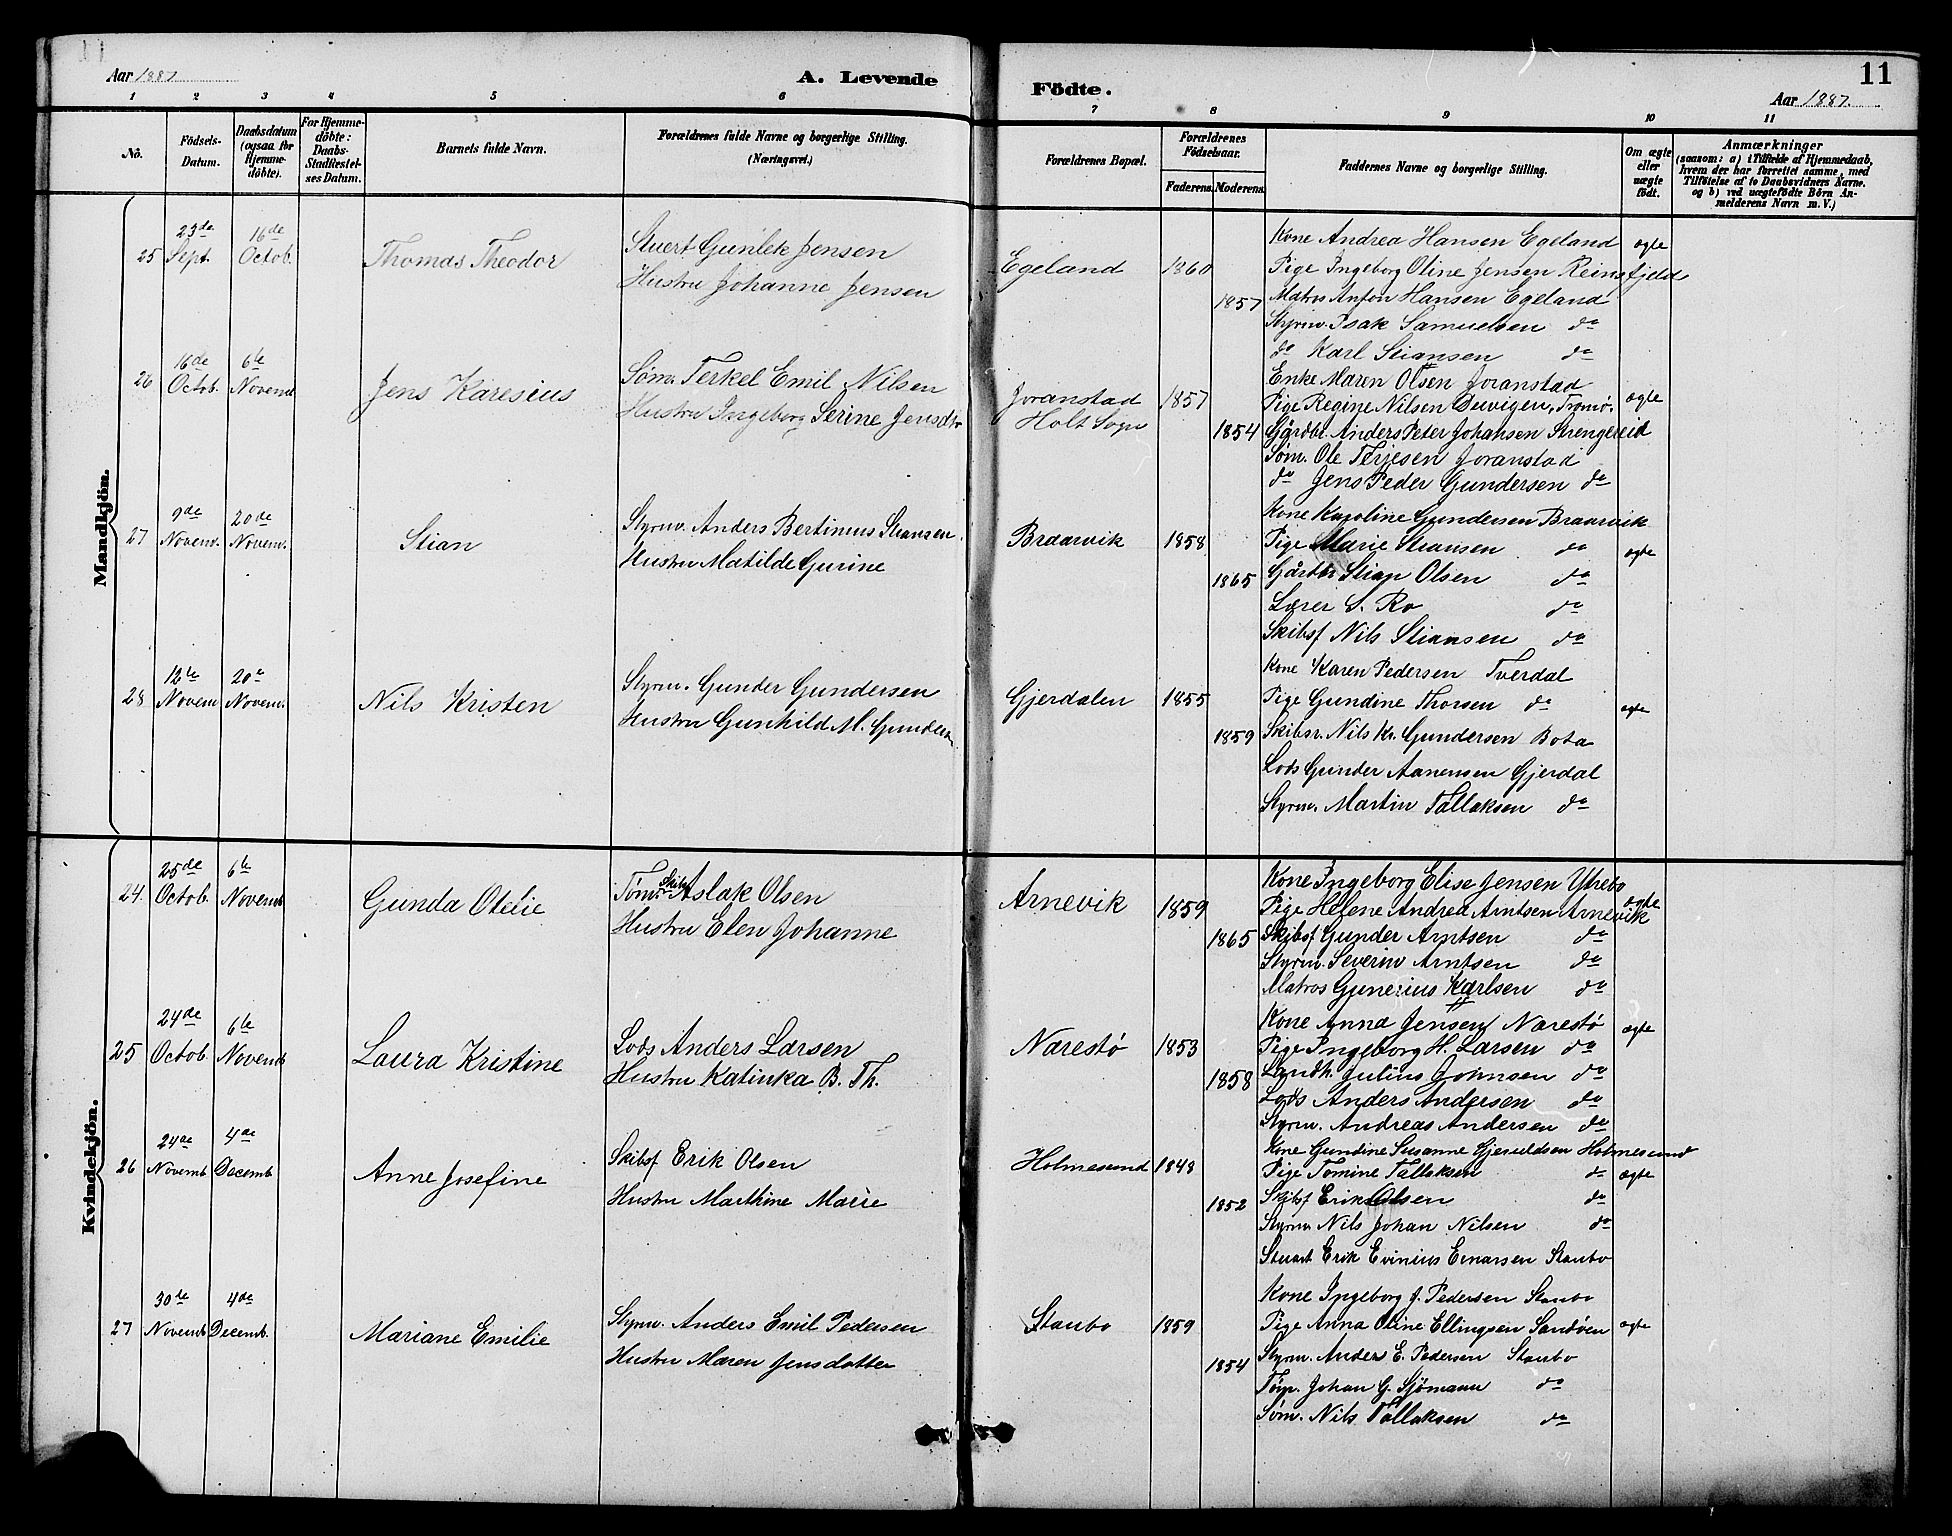 Aar 1887
A. Levende
Födte.
Aar 1887
11
1 2 3 4 5 6 7 8 9 10 11
No.
Födsels-Datum.
Daabsdatum (ogsaa for Hjemmedöbte).
For Hjemmedöbte: Daabs-Stadfæstelses Datum.
Barnets fulde Navn.
Forældrenes fulde Navne og borgerlige Stilling. (Næringsvei.)
Forældrenes Bopæl.
Forældrenes Födselsaar.
Faderens. Moderens.
Faddernes Navne og borgerlige Stilling.
Om ægte eller uægte födt.
Anmærkninger
(saasom: a) i Tilfælde af Hjemmedaab, hvem der har forrettet samme, med Tilföielse af to Daabsvidners Navne. og b) ved uægtefödte Börn Anmelderens Navn m. V.)
Mandkjön.
25 23de Sept. 16de Octob. Thomas Theodor
Stuert Gunlek Jensen
Hustru Johanne Jensen
Egeland 1860 1857
Kone Andrea Hansen Egeland ægte
Pige Ingeborg Oline Jensen Reinsfjeld
Matros Anton Hansen Egeland
Styrm. Isak Samuelsen do
do Karl Stiansen do
26 16de Octob. 6te Novemb Jens Karesius
Søm. Terkel Emil Nilsen
Hustru Ingeborg Serine Jensdtr
Joranstad
Holt Sogn
1857 1854
Enke Maren Olsen Joranstad
Pige Regine Nilsen Duvigen, Tromø. ægte
Gårdbr. Anders Peter Johansen Strengereid
Søm. Ole Terjesen Joranstad
do Jens Peder Gundersen do
27 9de Novem. 20de Novem. Stian
Styrm. Anders Bertinius Stiansen
Hustru Matilde Gurine
Braarvik 1858 1865
Kone Karoline Gundersen Braarvik
Pige Marie Stiansen do ægte
Gårbr Stian Olsen do
Lærer S. Ro do
Skibsf Nils Stiansen do
28 12te Novem 20e Novem. Nils Kristen
Styrm. Gunder Gundersen
Hustru Gunhild M. Gundersen
Gjerdalen 1855 1859
Kone Karen Pedersen Tverdal
Pige Gundine Thorsen do ægte
Skibsr. Nils Kr. Gundersen Bota
Lods Gunder Aanensen Gjerdal
Styrm. Martin Tallaksen do
Kvindekjön.
24. 25de Octob. 6te Novemb Gunda Otelie
Skibs
Tømr. Aslak Olsen
Hustru Elen Johanne
Arnevik 1859 1865
Kone Ingeborg Elise Jensen Ytrebo
Pige Helene Andrea Arntsen Arnevik ægte
Skibsf Gunder Arntsen do
Styrm. Severin Arntsen do
Matros Gunerius Karlsen do
25 24de Octob. 6te Novemb Laura Kristine
Lods Anders Larsen
Hustru Katinka B. Th.
Narestø 1853 1858
Kone Anna Jensen Narestø ægte
Pige Ingeborg H. Larsen do
Landh. Julius Johnsen do
Lods Anders Andersen do
Styrm. Andreas Andersen do
26 24de Novemb 4de Decemb Anne Josefine
Skibsf Erik Olsen
Hustru Marthine Marie
Holmesund 1848 1852
Kone Gundine Susanne Gjeruldsen Holmesund
Pige Tomine Tallaksen do ægte
Skibsf Erik Olsen do
Styrm. Nils Johan Nilsen do
Stuart Erik Evinius Einarsen Staubo
27 30de Novemb 4de Decemb. Mariane Emilie
Styrm. Anders Emil Pedersen
Hustru Maren Jensdatter
Staubo 1859 1854
Kone Ingeborg J. Pedersen Staubo
Pige Anna Oline Ellingsen Sandøen ægte
Styrm. Anders E. Pedersen Staubo
Tøm. Johan G. Sjömann do
Søm. Nils Tallaksen do